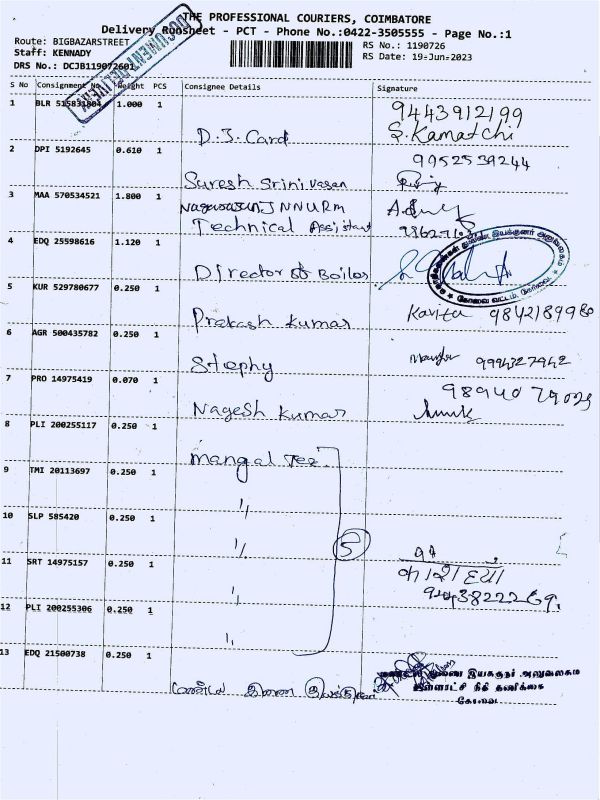 THE PROFESSIONAL COURIERS, COIMBATORE
Delivery Runsheet - PCT - Phone No.:0422-3505555 - Page No.:1
Route: BIGBAZARSTREET
RS No.: 1190726
Staff: KENNADY
RS Date: 19-Jun-2023
DRS No.: DCJB119072601
S No Consignment No Weight PCS Consignee Details Signature
1 BLR 515831804 1.000 1 D.J. Card 9443912199
S. Kamatchi
2 DPI 5192645 0.610 1 Suresh Srinivasan 9952539244
3 MAA 570534521 1.800 1 JNNURM
Technical Assistant
4 EDQ 25598616 1.120 1 Director of Boiler
5 KUR 529780677 0.250 1 Prakash Kumar Kavita
6 AGR 500435782 0.250 1 Stephy 9994327942
7 PRO 14975419 0.070 1 Nagesh Kumar
8 PLI 200255117 0.250 1 Mangal Tex.
9 TMI 20113697 0.250 1 "
10 SLP 585420 0.250 1 "
5
11 SRT 14975157 0.250 1 "
12 PLI 200255306 0.250 1 "
13 EDQ 21500738 0.250 1
துணை இயக்குநர் அலுவலகம
உள்ளாட்சி நிதி தணிக்கை
கோவை